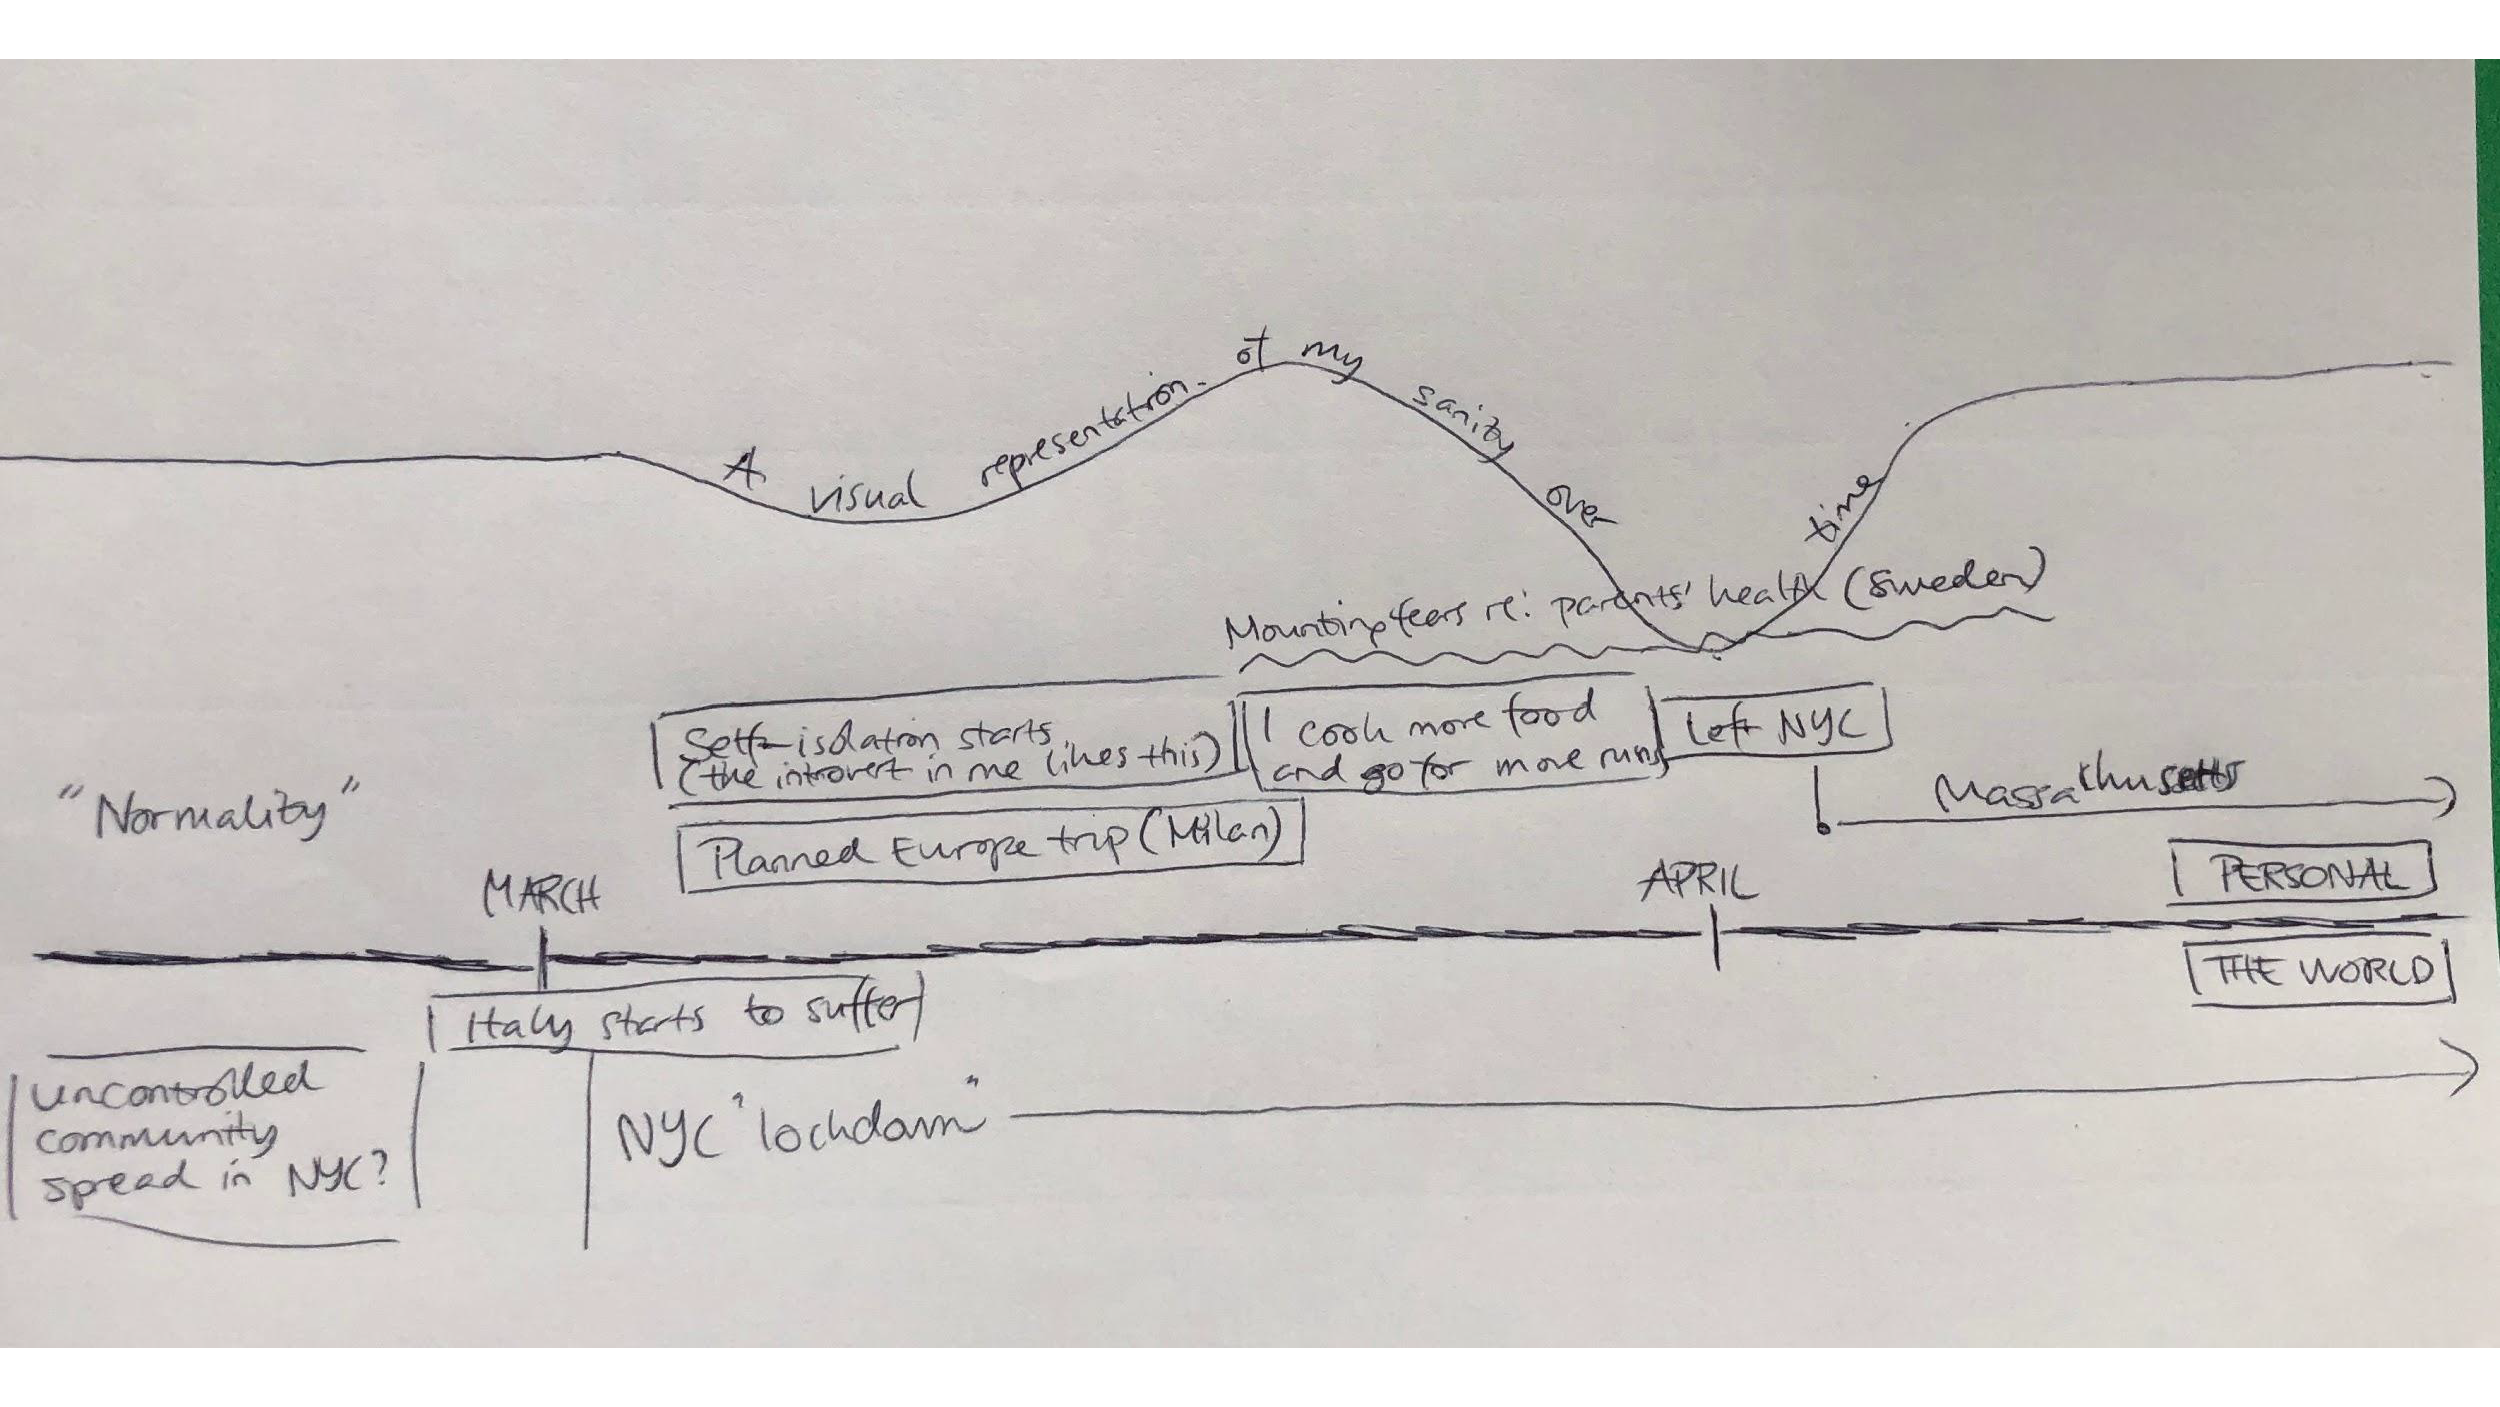 A visual representation of my sanity over time
Mounting fears re: parents' health (Sweden)
Self-isolation starts
(the introvert in me likes this)
I cook more food
and go for more runs
Left NYC
"Normality"
Massachusetts
Planned Europe trip (Milan)
MARCH
APRIL
PERSONAL
THE WORLD
Italy starts to suffer
uncontrolled
community
spread in NYC?
NYC "lockdown"